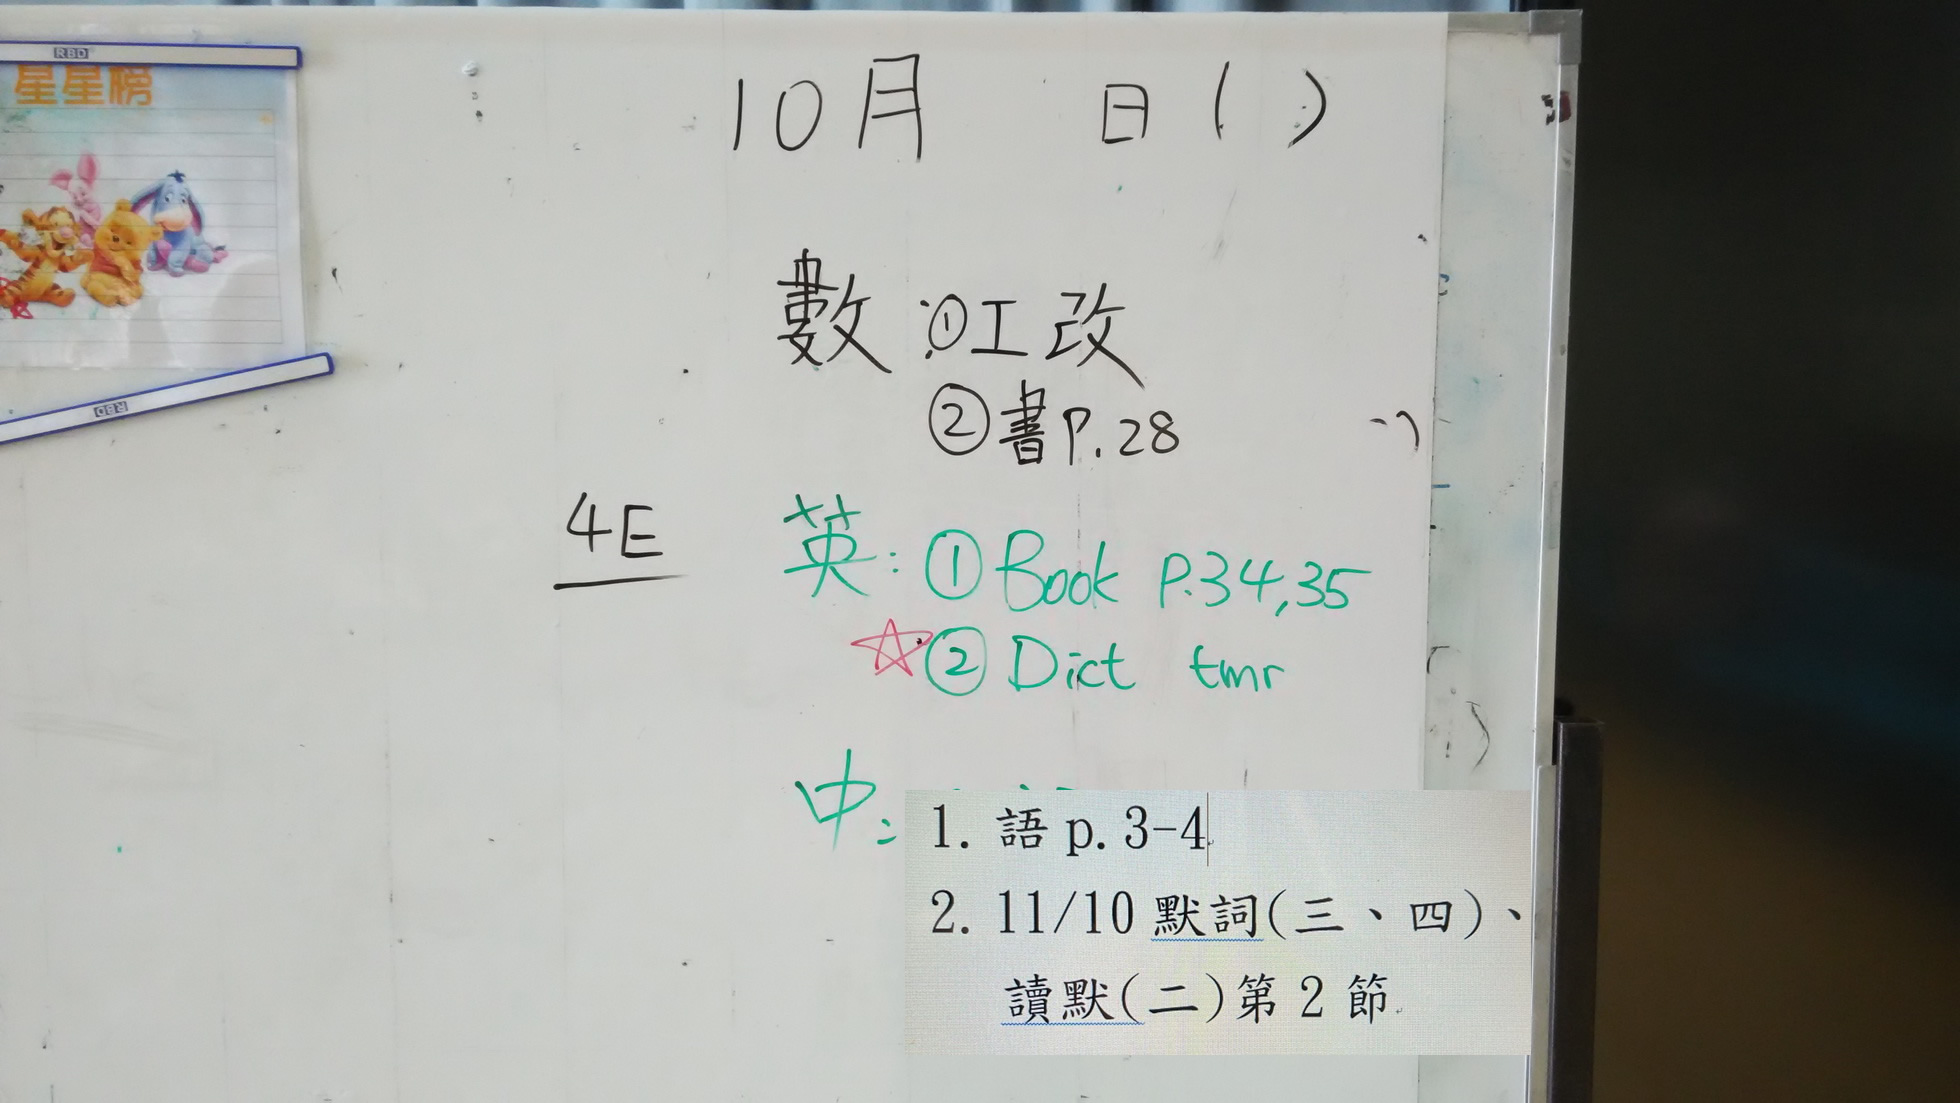 RBD
星星榜
RBD
10月 日( )
數:①工改
②書P.28
4E
英:①Book P.34,35
☆②Dict tmr
中:
1. 語 p. 3-4
2. 11/10 默詞(三、四)、
讀默(二)第 2 節